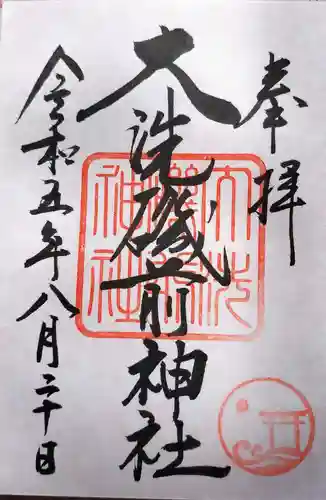 奉拝
大洗磯前神社
令和五年八月二十日
大洗磯前神社